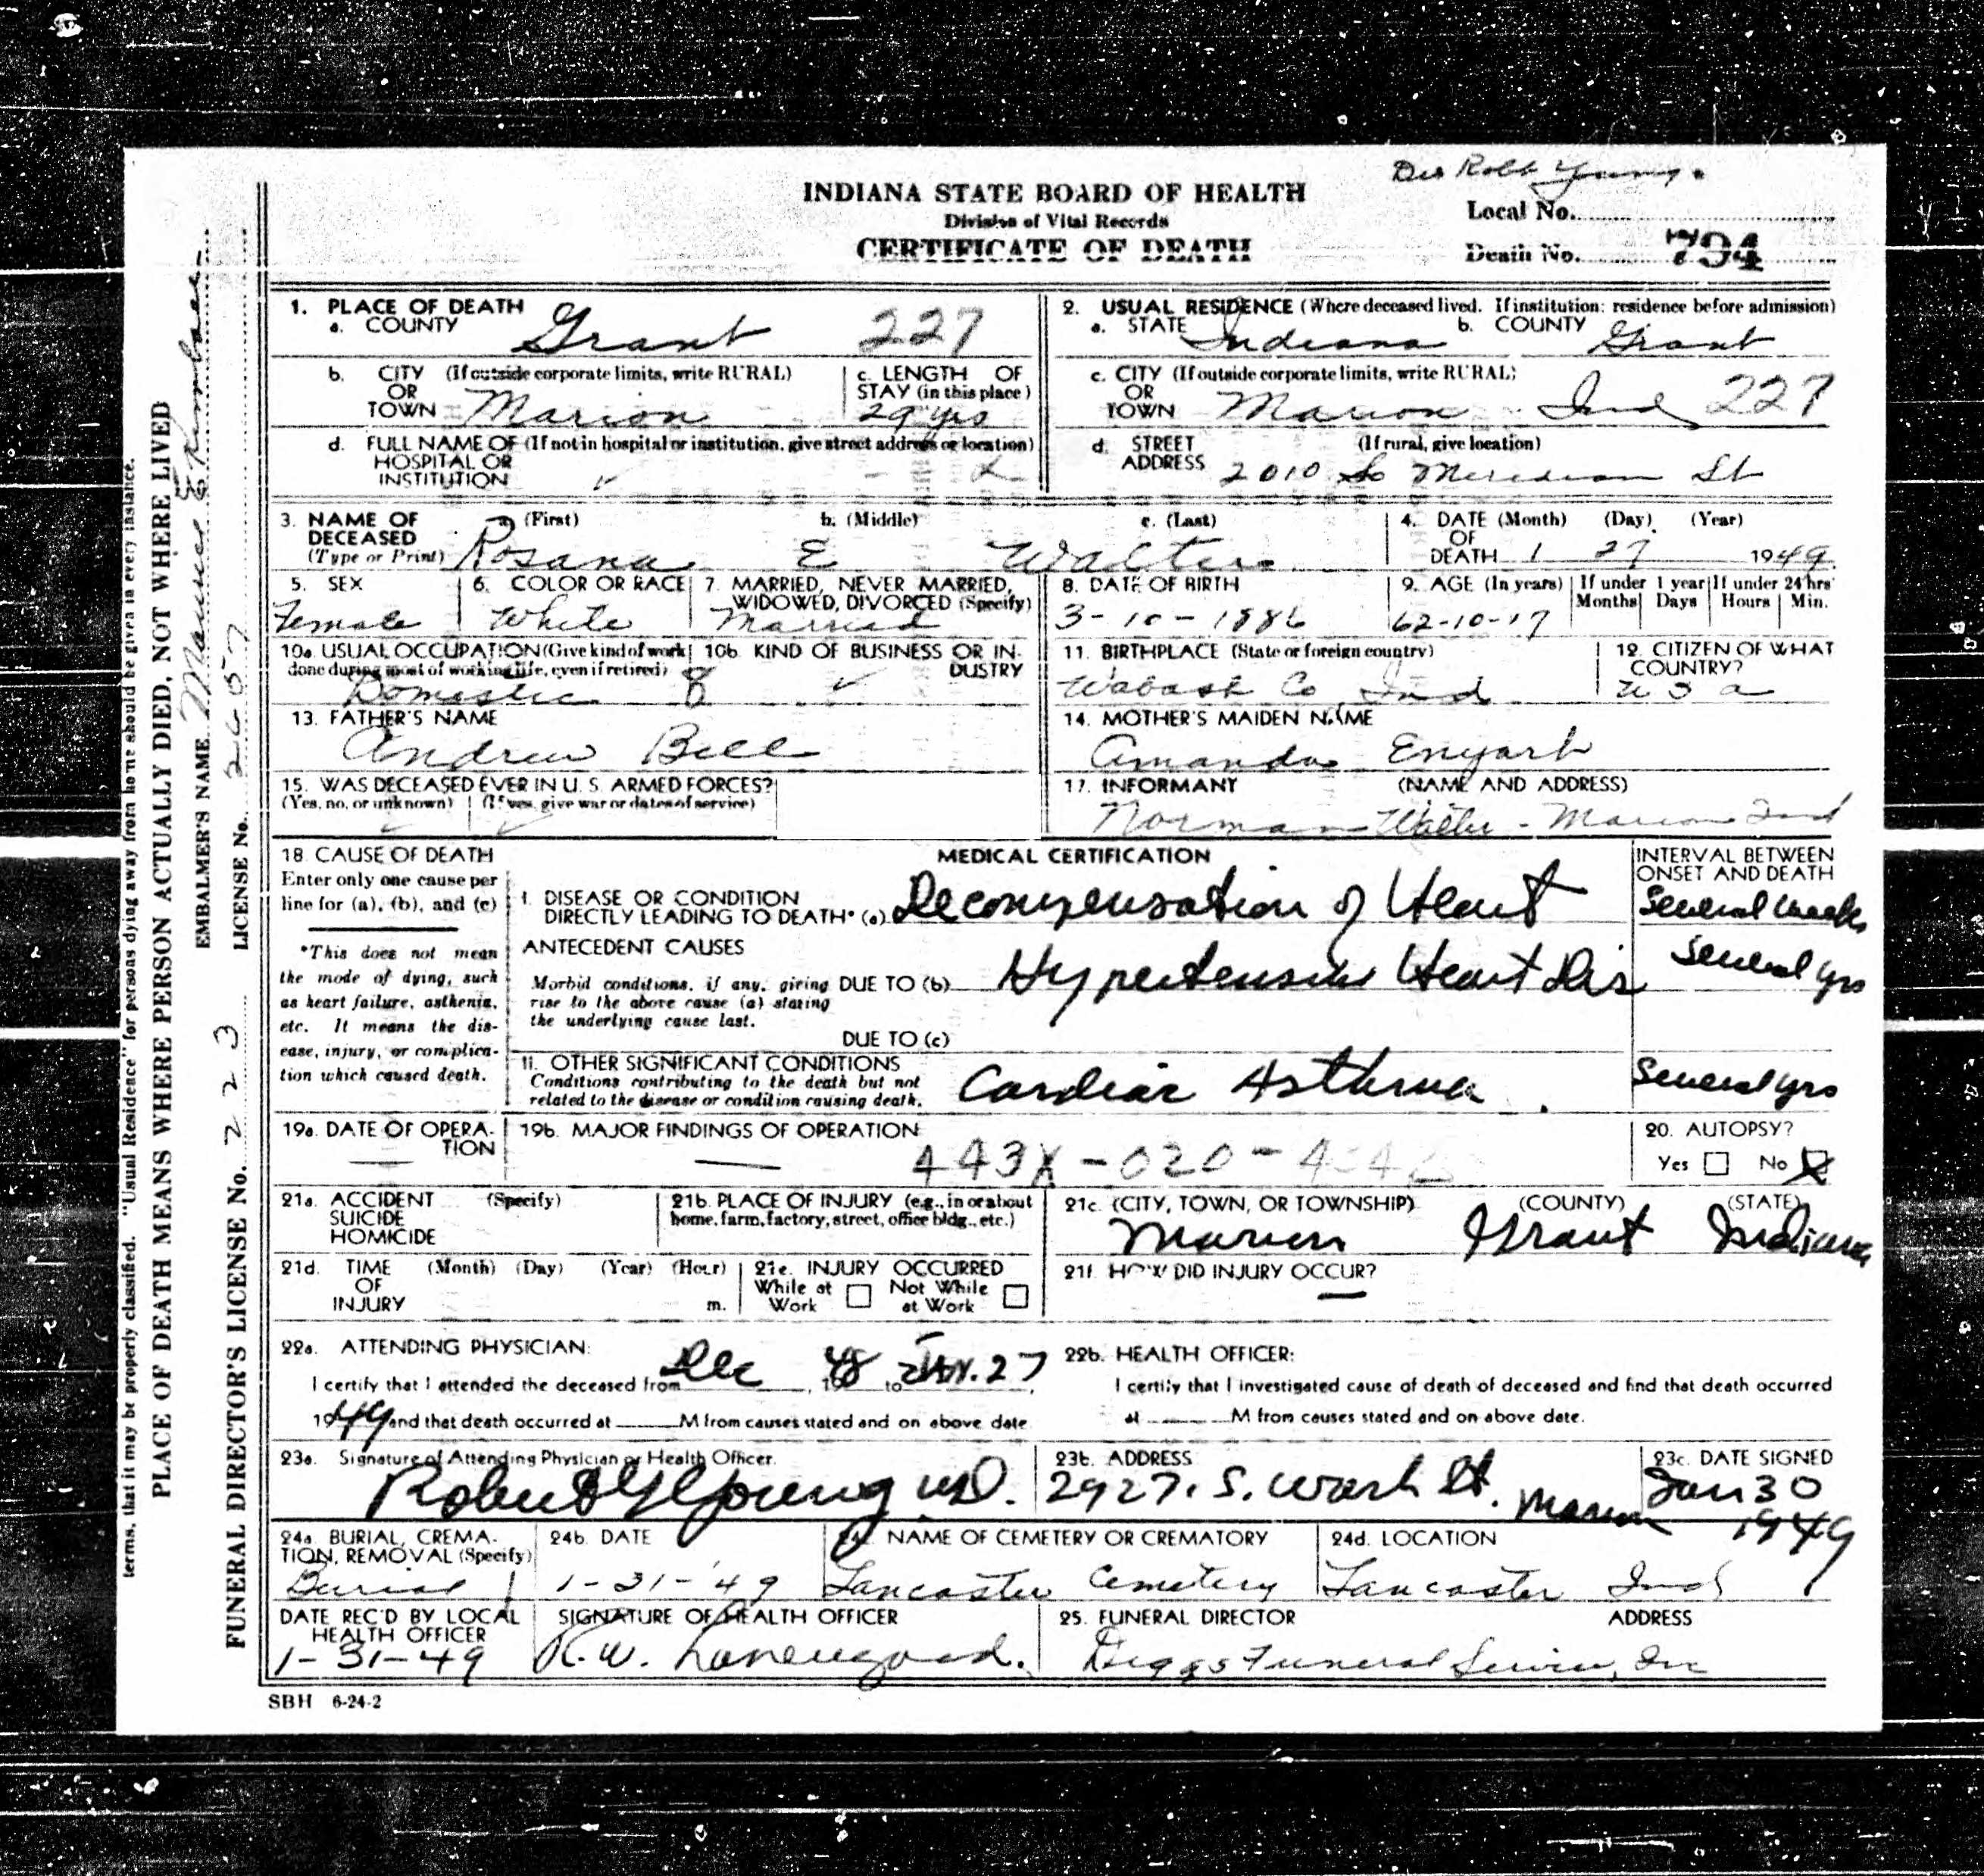 Robt Young.
INDIANA STATE BOARD OF HEALTH
Local No.
Division of Vital Records
CERTIFICATE OF DEATH
Death No. 794
1. PLACE OF DEATH
a. COUNTY Grant 227
2. USUAL RESIDENCE (Where deceased lived. If institution: residence before admission)
a. STATE Indiana b. COUNTY Grant
b. CITY (If outside corporate limits, write RURAL) OR TOWN Marion
c. LENGTH OF STAY (in this place) 29 yrs
c. CITY (If outside corporate limits, write RURAL) OR TOWN Marion Ind 227
d. FULL NAME OF (If not in hospital or institution, give street address or location) HOSPITAL OR INSTITUTION
d. STREET ADDRESS (If rural, give location) 2010 So Meridian St
3. NAME OF DECEASED (Type or Print) a. (First) Rosana b. (Middle) E c. (Last) Walter
4. DATE OF DEATH (Month) (Day) (Year) 1 27 1949
5. SEX Female
6. COLOR OR RACE White
7. MARRIED, NEVER MARRIED, WIDOWED, DIVORCED (Specify) Married
8. DATE OF BIRTH 3-10-1886
9. AGE (In years) If under 1 year Months Days If under 24 hrs Hours Min. 62-10-17
10a. USUAL OCCUPATION (Give kind of work done during most of working life, even if retired) Domestic 8
10b. KIND OF BUSINESS OR INDUSTRY
11. BIRTHPLACE (State or foreign country) Wabash Co Ind
12. CITIZEN OF WHAT COUNTRY? U S A
13. FATHER'S NAME Andrew Bell
14. MOTHER'S MAIDEN NAME Amanda Enyart
15. WAS DECEASED EVER IN U. S. ARMED FORCES?
(Yes, no, or unknown) (If yes, give war or dates of service)
17. INFORMANT (NAME AND ADDRESS)
Norman Walter - Marion Ind
18. CAUSE OF DEATH
Enter only one cause per line for (a), (b), and (c)
*This does not mean the mode of dying, such as heart failure, asthenia, etc. It means the disease, injury, or complication which caused death.
MEDICAL CERTIFICATION
INTERVAL BETWEEN ONSET AND DEATH
I. DISEASE OR CONDITION DIRECTLY LEADING TO DEATH* (a) Decompensation of Heart Several weeks
ANTECEDENT CAUSES
Morbid conditions, if any, giving rise to the above cause (a) stating the underlying cause last.
DUE TO (b) Hypertensive Heart Dis Several yrs
DUE TO (c)
II. OTHER SIGNIFICANT CONDITIONS
Conditions contributing to the death but not related to the disease or condition causing death.
Cardiac Asthma Several yrs
19a. DATE OF OPERATION —
19b. MAJOR FINDINGS OF OPERATION —
443X-020-
20. AUTOPSY? Yes No X
21a. ACCIDENT SUICIDE HOMICIDE (Specify)
21b. PLACE OF INJURY (e.g., in or about home, farm, factory, street, office bldg., etc.)
21c. (CITY, TOWN, OR TOWNSHIP) (COUNTY) (STATE)
Marion Grant Indiana
21d. TIME OF INJURY (Month) (Day) (Year) (Hour) m.
21e. INJURY OCCURRED While at Work Not While at Work
21f. HOW DID INJURY OCCUR? —
22a. ATTENDING PHYSICIAN:
I certify that I attended the deceased from Dec, 1948 to Jan. 27,
1949 and that death occurred at M from causes stated and on above date.
22b. HEALTH OFFICER:
I certify that I investigated cause of death of deceased and find that death occurred
at M from causes stated and on above date.
23a. Signature of Attending Physician or Health Officer.
Robert G Young MD.
23b. ADDRESS
2927. S. Wash St. Marion
23c. DATE SIGNED
Jan 30 1949
24a. BURIAL, CREMATION, REMOVAL (Specify) Burial
24b. DATE 1-31-'49
24c. NAME OF CEMETERY OR CREMATORY Lancaster Cemetery
24d. LOCATION Lancaster Ind
DATE REC'D BY LOCAL HEALTH OFFICER 1-31-49
SIGNATURE OF HEALTH OFFICER
25. FUNERAL DIRECTOR ADDRESS
Diggs Funeral Service, Inc
SBH 6-24-2
terms, that it may be properly classified. "Usual Residence" for persons dying away from home should be given in every instance.
PLACE OF DEATH MEANS WHERE PERSON ACTUALLY DIED, NOT WHERE LIVED
EMBALMER'S NAME
LICENSE No. 2657
FUNERAL DIRECTOR'S LICENSE No. 2223